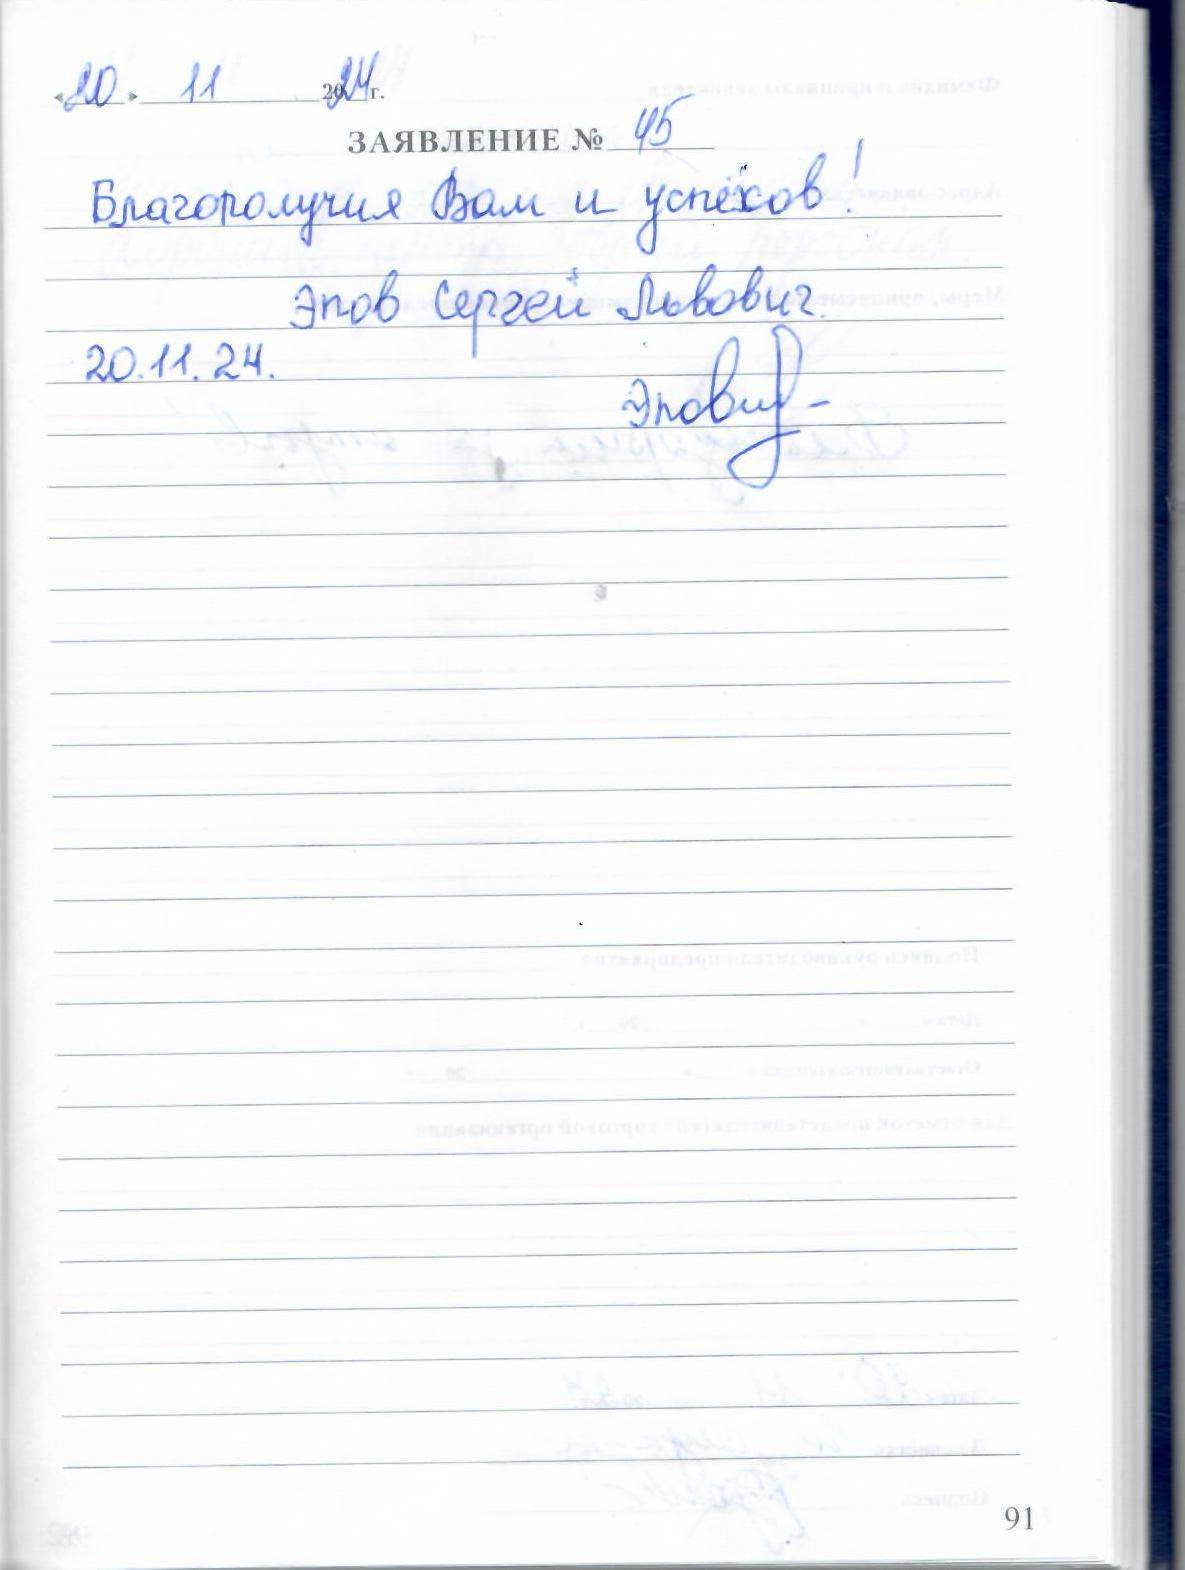 «20» 11 2024 г.
ЗАЯВЛЕНИЕ № 45
Благополучия Вам и успехов!
Эпов Сергей Львович.
20.11.24.
91